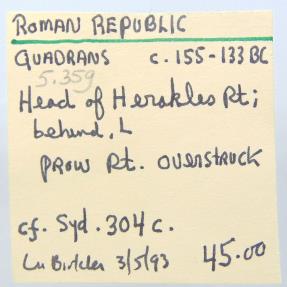 ROMAN REPUBLIC
QUADRANS c. 155-133 BC
5.35g
Head of Herakles Rt;
behind, L
PROW Rt. OVERSTRUCK
cf. Syd. 304 c.
3/5/93 45.00